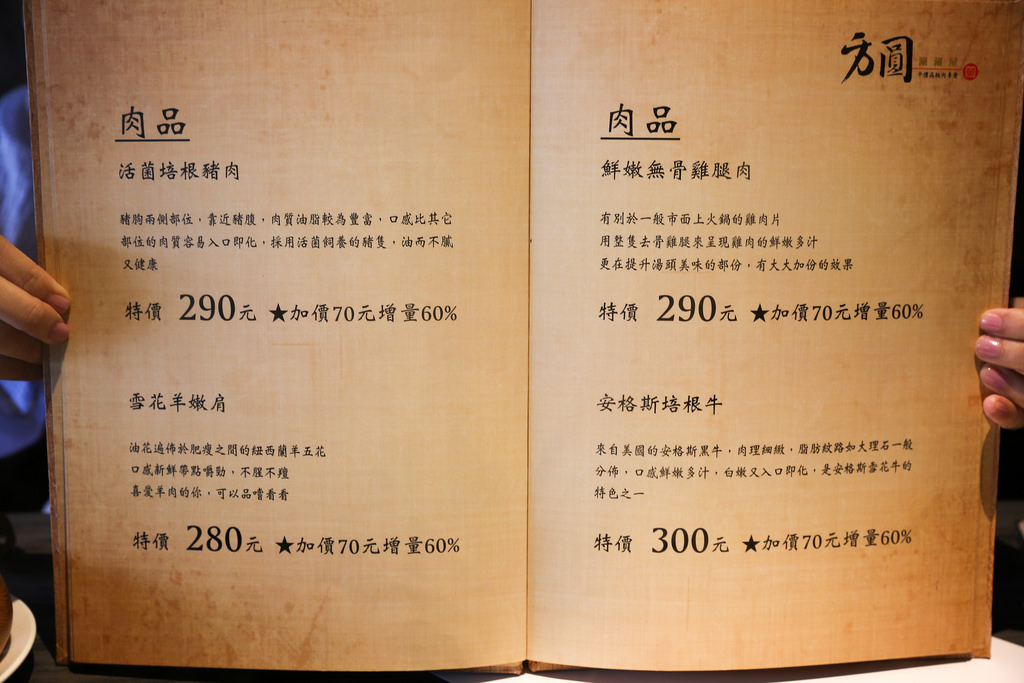 肉品
活菌培根豬肉
豬胸兩側部位，靠近豬腹，肉質油脂較為豐富，口感比其它
部位的肉質容易入口即化，採用活菌飼養的豬隻，油而不膩
又健康
特價 290元 ★加價70元增量60%
雪花羊嫩肩
油花遍佈於肥瘦之間的紐西蘭羊五花
口感新鮮帶點嚼勁，不腥不羶
喜愛羊肉的你，可以品嚐看看
特價 280元 ★加價70元增量60%
方圓
涮涮屋
肉品
鮮嫩無骨雞腿肉
有別於一般市面上火鍋的雞肉片
用整隻去骨雞腿來呈現雞肉的鮮嫩多汁
更在提升湯頭美味的部份，有大大加份的效果
特價 290元 ★加價70元增量60%
安格斯培根牛
來自美國的安格斯黑牛，肉理細緻，脂肪紋路如大理石一般
分佈，口感鮮嫩多汁，白嫩又入口即化，是安格斯雪花牛的
特色之一
特價 300元 ★加價70元增量60%